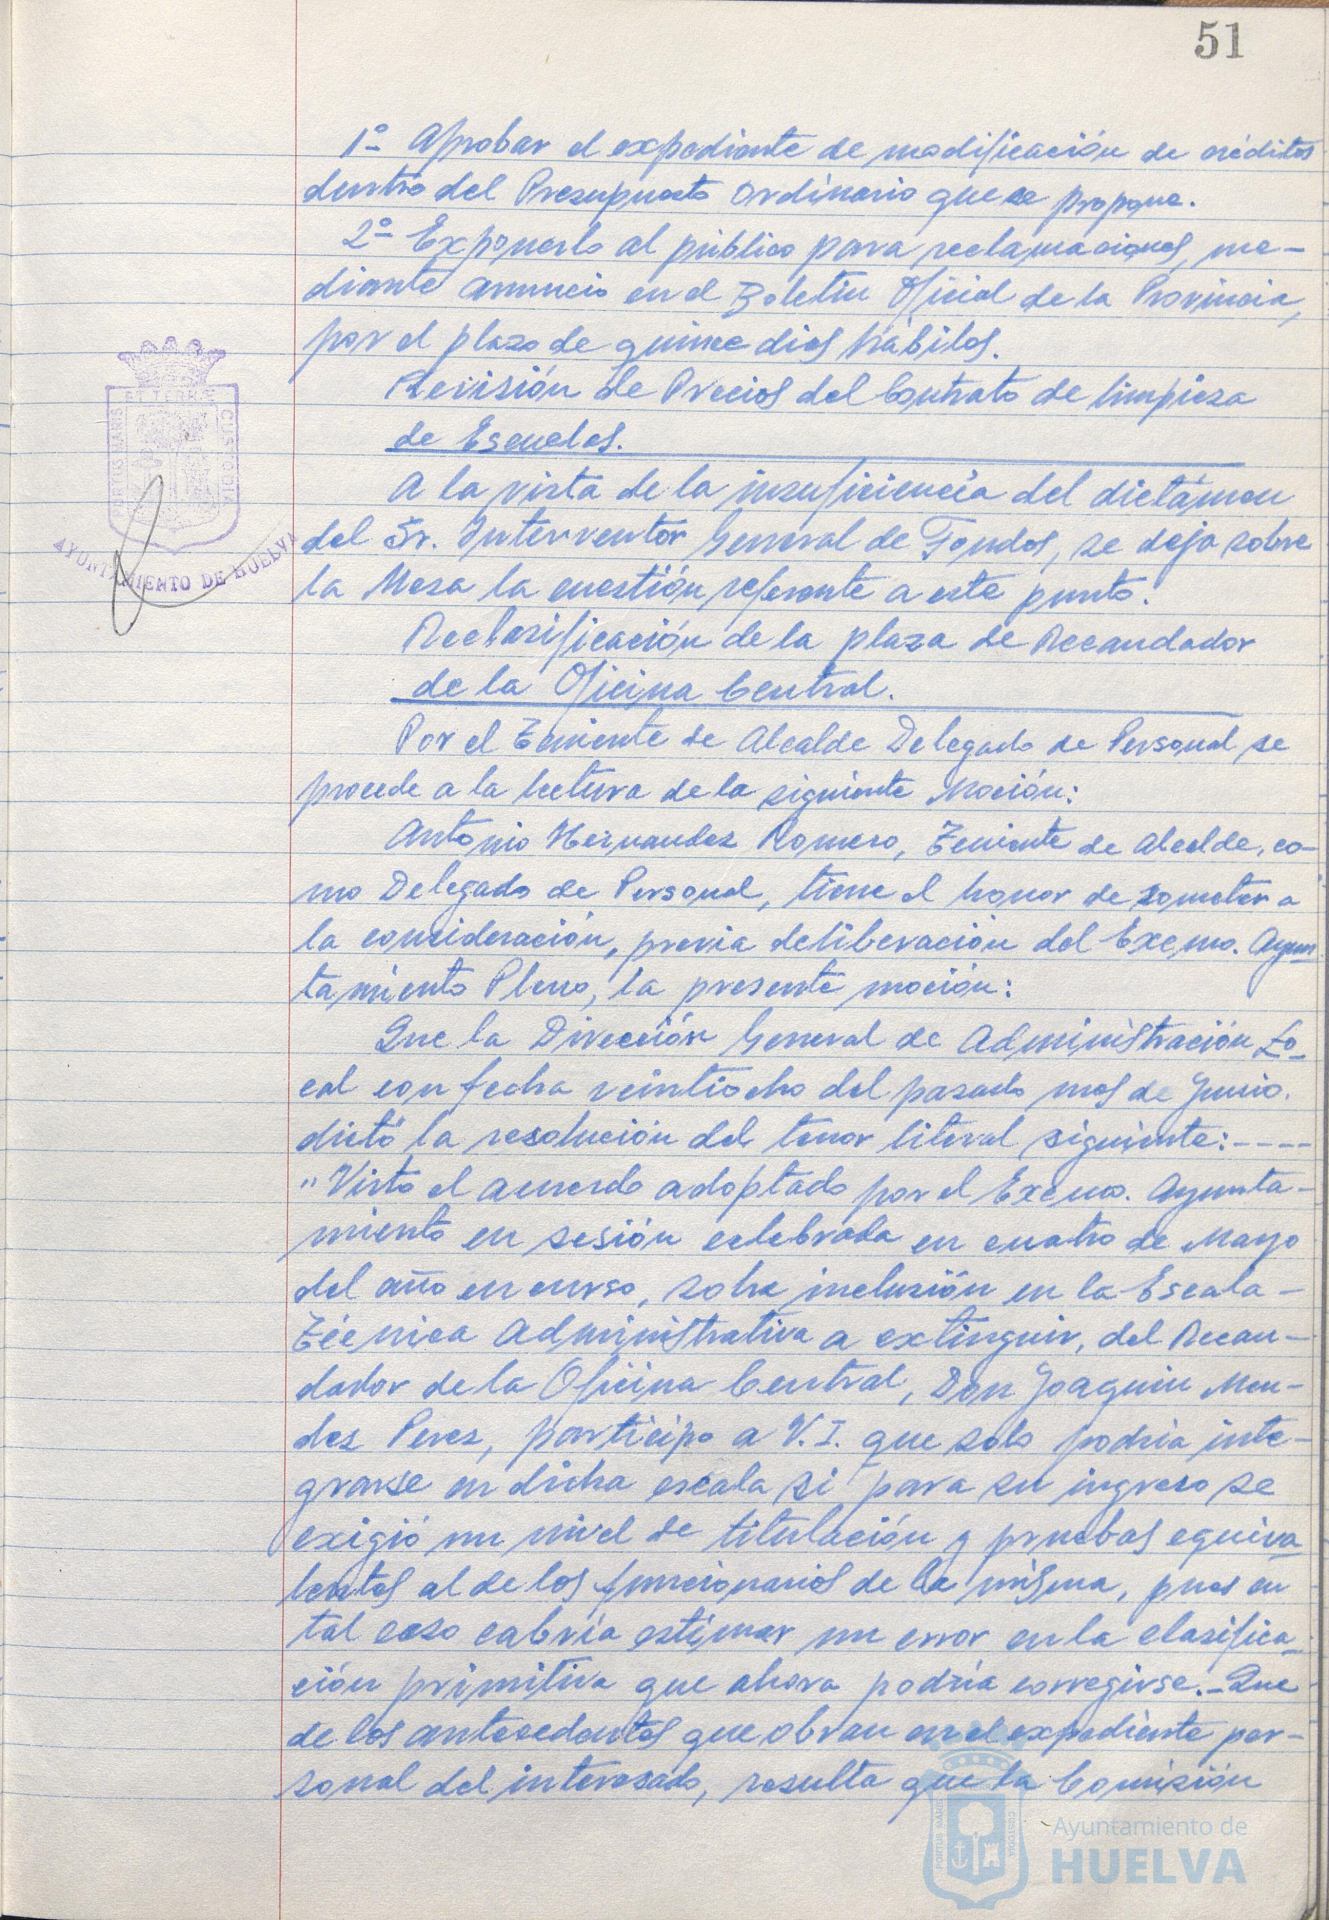 51
1º Aprobar el expediente de modificación de créditos
dentro del Presupuesto Ordinario que se propone.
2º Exponerlo al público para reclamaciones, me-
diante anuncio en el Boletín Oficial de la Provincia,
por el plazo de quince dias hábiles.
Revisión de Precios del Contrato de limpieza
de Escuelas.
A la vista de la insuficiencia del dictámen
del Sr. Interventor General de Fondos, se deja sobre
la Mesa la cuestión referente a este punto.
Reclasificación de la plaza de Recaudador
de la Oficina Central.
Por el Teniente de Alcalde Delegado de Personal se
procede a la lectura de la siguiente Moción:
Antonio Hernandez Romero, Teniente de Alcalde, co-
mo Delegado de Personal, tiene el honor de someter a
la consideración, previa deliberación del Excmo. Ayun-
tamiento Pleno, la presente moción:
Que la Dirección General de Administración Lo-
cal con fecha veintiocho del pasado mes de Junio.
dictó la resolución del tenor literal siguiente:----
"Visto el acuerdo adoptado por el Excmo. Ayunta-
miento en sesión celebrada en cuatro de Mayo
del año en curso, sobre inclusión en la Escala-
Técnica Administrativa a extinguir, del Recau-
dador de la Oficina Central, Don Joaquin Men-
dez Perez, participo a V.I. que solo podria inte-
grarse en dicha escala si para su ingreso se
exigió un nivel de titulación y pruebas equiva-
lentes al de los funcionarios de la misma, pues en
tal caso cabría estimar un error en la clasifica-
ción primitiva que ahora podría corregirse.-Que
de los antecedentes que obran en el expediente per-
sonal del interesado, resulta que la Comisión
PORTUS MARIS
ET TERRÆ
CUSTODIA
AYUNTAMIENTO DE HUELVA
PORTUS MARIS
CUSTODIA
Ayuntamiento de
HUELVA